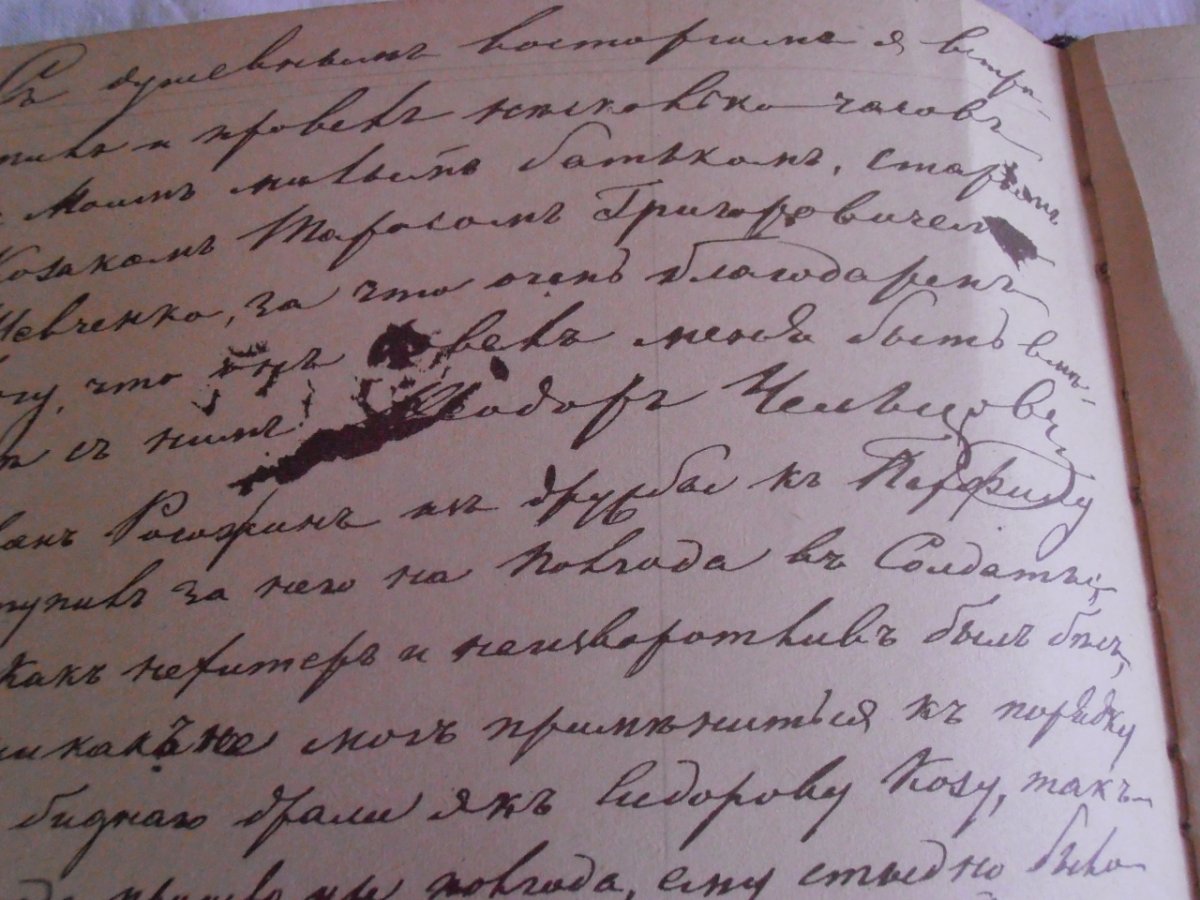 Съ душевнымъ восторгомъ я встрѣ-
тилъ и провелъ нѣсколько часовъ
съ Моимъ милымъ батькомъ, старымъ
Козакомъ Тарасомъ Григоровичем
Шевченко, за что очень благодаренъ
Богу, что онъ велъ меня быть вмѣ-
съ нимъ Ѳеодоръ Чельцовъ
Рогожинъ из дружбы къ Парфилу
поступилъ за него на полгода въ Солдаты,
какъ нехитеръ и неизворотливъ былъ бѣсъ,
никакъ не могъ примѣниться къ порядку
биднаго драли якъ Сидорову Козу, такъ
прошло полгода, ему стыдно было